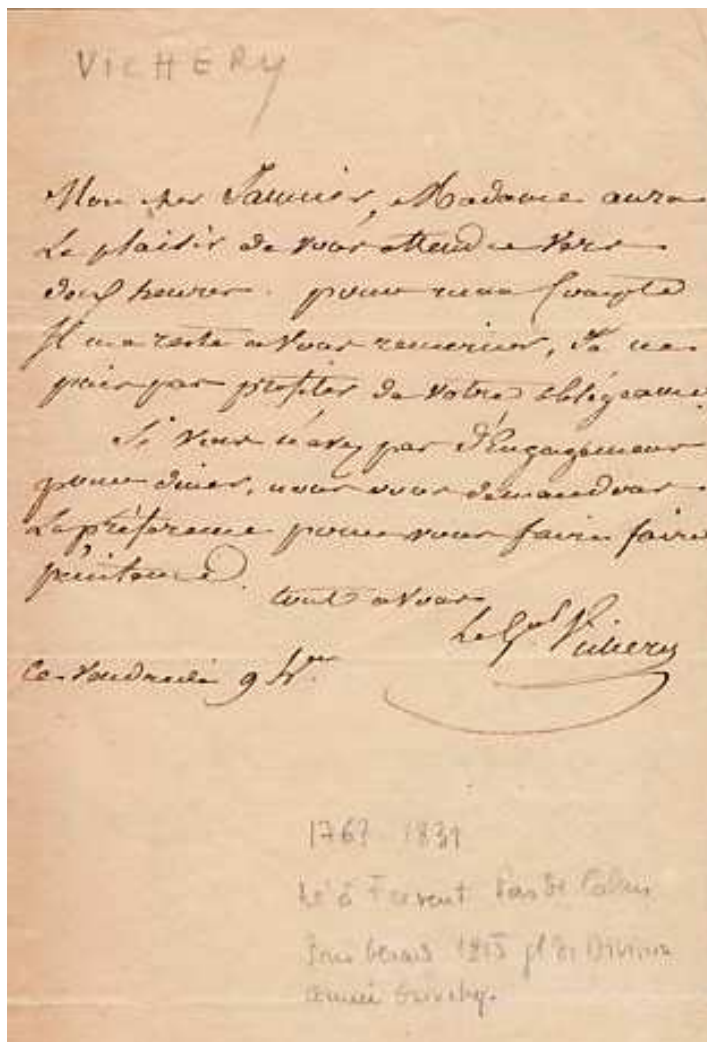 VICHERY
Mon cher Jaunier, Madame aura
Le plaisir de vous attendre vers
heures. pour mon Compte
Il me reste a vous remercier, Je ne
puis pas profiter de votre obligeance.
Si vous n'avez pas d'Engagement
pour diner, nous vous demandons
La préférence pour vous faire faire
tout a vous
Le Gal Vichery
Ce vendredi 9 h.
1767 1831
Né à Frévent Pas de Calais
1815 gl de Division
armée Grouchy.